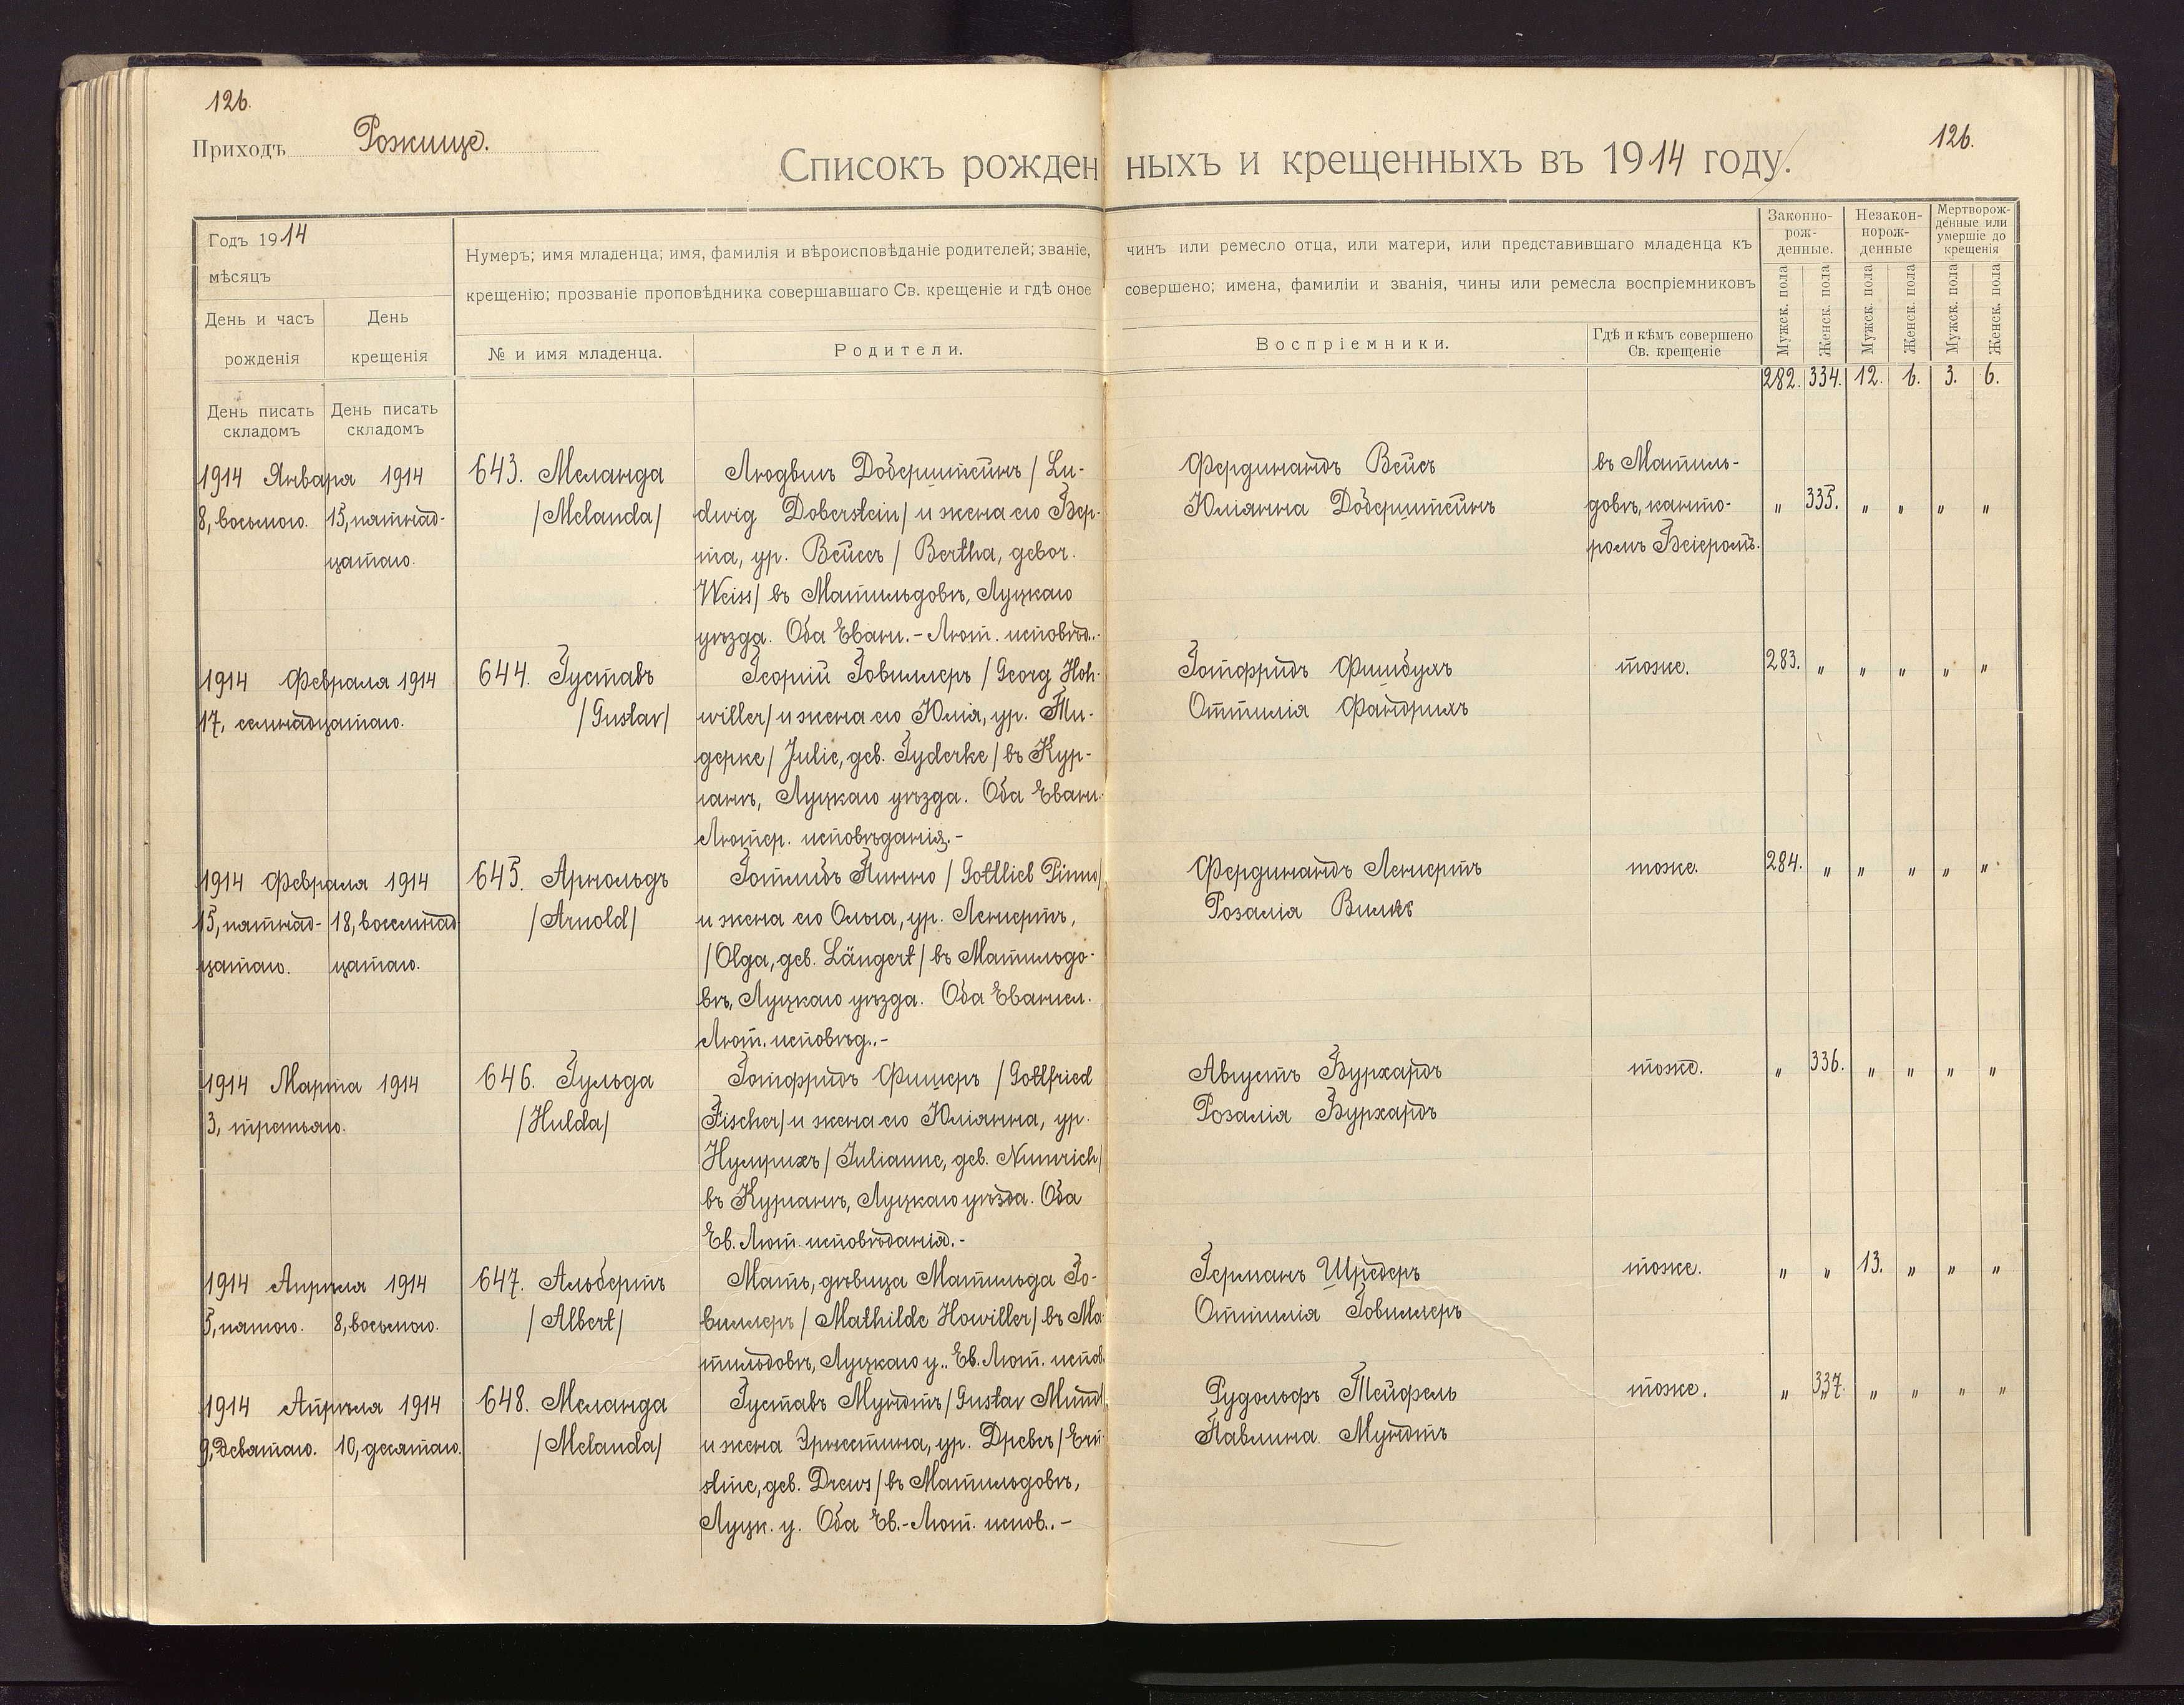 126.
126.
Приходъ Рожище.
Списокъ рожденныхъ и крещенныхъ въ 1914 году.
Годъ 1914
мѣсяцъ
День и часъ рожденія
День крещенія
Нумеръ; имя младенца; имя, фамилія и вѣроисповѣданіе родителей; званіе, чинъ или ремесло отца, или матери, или представившаго младенца къ
крещенію; прозваніе проповѣдника совершавшаго Св. крещеніе и гдѣ оное совершено; имена, фамиліи и званія, чины или ремесла воспріемниковъ
№ и имя младенца.
Родители.
Воспріемники.
Гдѣ и кѣмъ совершено
Св. крещеніе
Законно-
рож-
денные.
Незакон-
норож-
денные
Мертворож-
денные или
умершіе до
крещенія
Мужск. пола
Женск. пола
Мужск. пола
Женск. пола
Мужск. пола
Женск. пола
282. 334. 12. 6. 3. 6.
День писать
складомъ
День писать
складомъ
1914 Января 1914
8, восьмого. 15, пятнад-
цатаго.
643. Меланда
/Melanda/
Людвигъ Доберштейнъ / Lu-
dwig Doberstein/ и жена его Бер-
та, ур. Вейсъ / Bertha, gebor.
Weiss/ въ Матильдовѣ, Луцкаго
уѣзда. Оба Еванг.-Лют. исповѣд..-
Фердинандъ Вейсъ
Юліанна Доберштейнъ
въ Матиль-
довѣ, канто-
ромъ Бейеромъ.
" 335. " " " "
1914 Февраля 1914
17, семнадцатаго.
644. Густавъ
/Gustav/
Георгій Говиллеръ / Georg Hoh-
willer/ и жена его Юлія, ур. Ти-
дерке / Julie, geb. Tyderke / въ Кур-
ганѣ, Луцкаго уѣзда. Оба Еванг.
Лютер. исповѣданія.-
Готфридъ Фишбухъ
Оттилія Фандрихъ
тоже.
283. " " " " "
1914 Февраля 1914
15, пятнад- 18, восемнад-
цатаго. цатаго.
645. Арнольдъ
/Arnold/
Готлибъ Пинно / Gottlieb Pinno/
и жена его Ольга, ур. Ленгертъ,
/Olga, geb. Längert/ въ Матильдо-
вѣ, Луцкаго уѣзда. Оба Евангел.
Лют. исповѣд..-
Фердинандъ Ленгертъ
Розалія Вилкъ
тоже.
284. " " " " "
1914 Марта 1914
3, третьяго.
646. Гульда
/Hulda/
Готфридъ Фишеръ / Gottfried
Fischer/ и жена его Юліанна, ур.
Нумрихъ / Julianne, geb. Numrich/
въ Курганѣ, Луцкаго уѣзда. Оба
Ев. Лют. исповѣданія.-
Августъ Бурхардъ
Розалія Бурхардъ
тоже.
" 336. " " " "
1914 Апрѣля 1914
5, пятого. 8, восьмого.
647. Альбертъ
/Albert/
Мать, дѣвица Матильда Го-
виллеръ / Mathilde Howiller/ въ Ма-
тильдовѣ, Луцкаго у.. Ев. Лют. испов.
Германъ Шредеръ
Оттилія Говиллеръ
тоже.
" " 13. " " "
1914 Апрѣля 1914
9, девятаго. 10, десятаго.
648. Меланда
/Melanda/
Густавъ Мундтъ / Gustav Mundt/
и жена Эрнестина, ур. Древсъ / Erne-
stine, geb. Drews / въ Матильдовѣ,
Луцк. у. Оба Ев.-Лют. испов..-
Рудольфъ Тейфель
Павлина Мундтъ
тоже.
" 337. " " " "